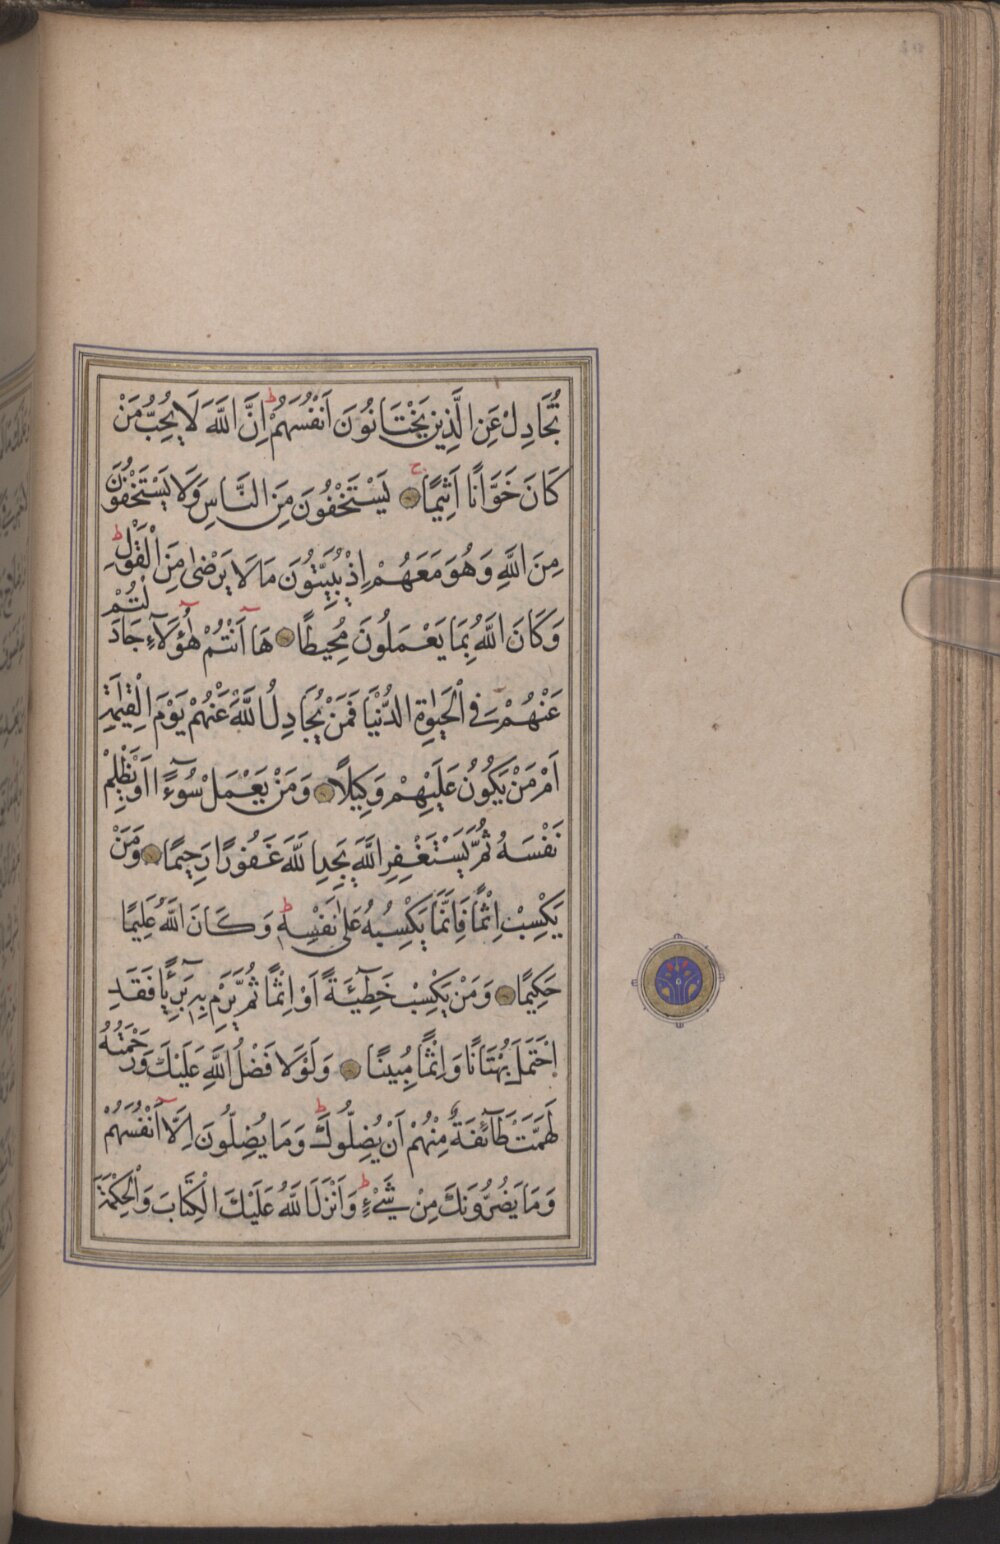 تُجَادِلْ عَنِ الَّذِينَ يَخْتَانُونَ اَنْفُسَهُمْ ط اِنَّ اللَّهَ لَا يُحِبُّ مَنْ
كَانَ خَوَّانًا اَثِيمًا ح يَسْتَخْفُونَ مِنَ النَّاسِ وَلَا يَسْتَخْفُونَ
مِنَ اللَّهِ وَهُوَ مَعَهُمْ اِذْ يُبَيِّتُونَ مَا لَا يَرْضٰى مِنَ الْقَوْلِ ط
وَكَانَ اللَّهُ بِمَا يَعْمَلُونَ مُحِيطًا هَا اَنْتُمْ هٰٓؤُلَاءِ جَادَلْتُمْ
عَنْهُمْ فِي الْحَيٰوةِ الدُّنْيَا فَمَنْ يُجَادِلُ اللَّهَ عَنْهُمْ يَوْمَ الْقِيٰمَةِ
اَمْ مَنْ يَكُونُ عَلَيْهِمْ وَكِيلًا وَمَنْ يَعْمَلْ سُوٓءًا اَوْ يَظْلِمْ
نَفْسَهُ ثُمَّ يَسْتَغْفِرِ اللَّهَ يَجِدِ اللَّهَ غَفُورًا رَحِيمًا وَمَنْ
يَكْسِبْ اِثْمًا فَاِنَّمَا يَكْسِبُهُ عَلٰى نَفْسِهِ ط وَكَانَ اللَّهُ عَلِيمًا
حَكِيمًا وَمَنْ يَكْسِبْ خَطِٓيئَةً اَوْ اِثْمًا ثُمَّ يَرْمِ بِهِ بَرِٓيئًا فَقَدِ
احْتَمَلَ بُهْتَانًا وَاِثْمًا مُبِينًا وَلَوْلَا فَضْلُ اللَّهِ عَلَيْكَ وَرَحْمَتُهُ
لَهَمَّتْ طَٓائِفَةٌ مِنْهُمْ اَنْ يُضِلُّوكَ ط وَمَا يُضِلُّونَ اِلَّٓا اَنْفُسَهُمْ
وَمَا يَضُرُّونَكَ مِنْ شَيْءٍ ط وَاَنْزَلَ اللَّهُ عَلَيْكَ الْكِتَابَ وَالْحِكْمَةَ